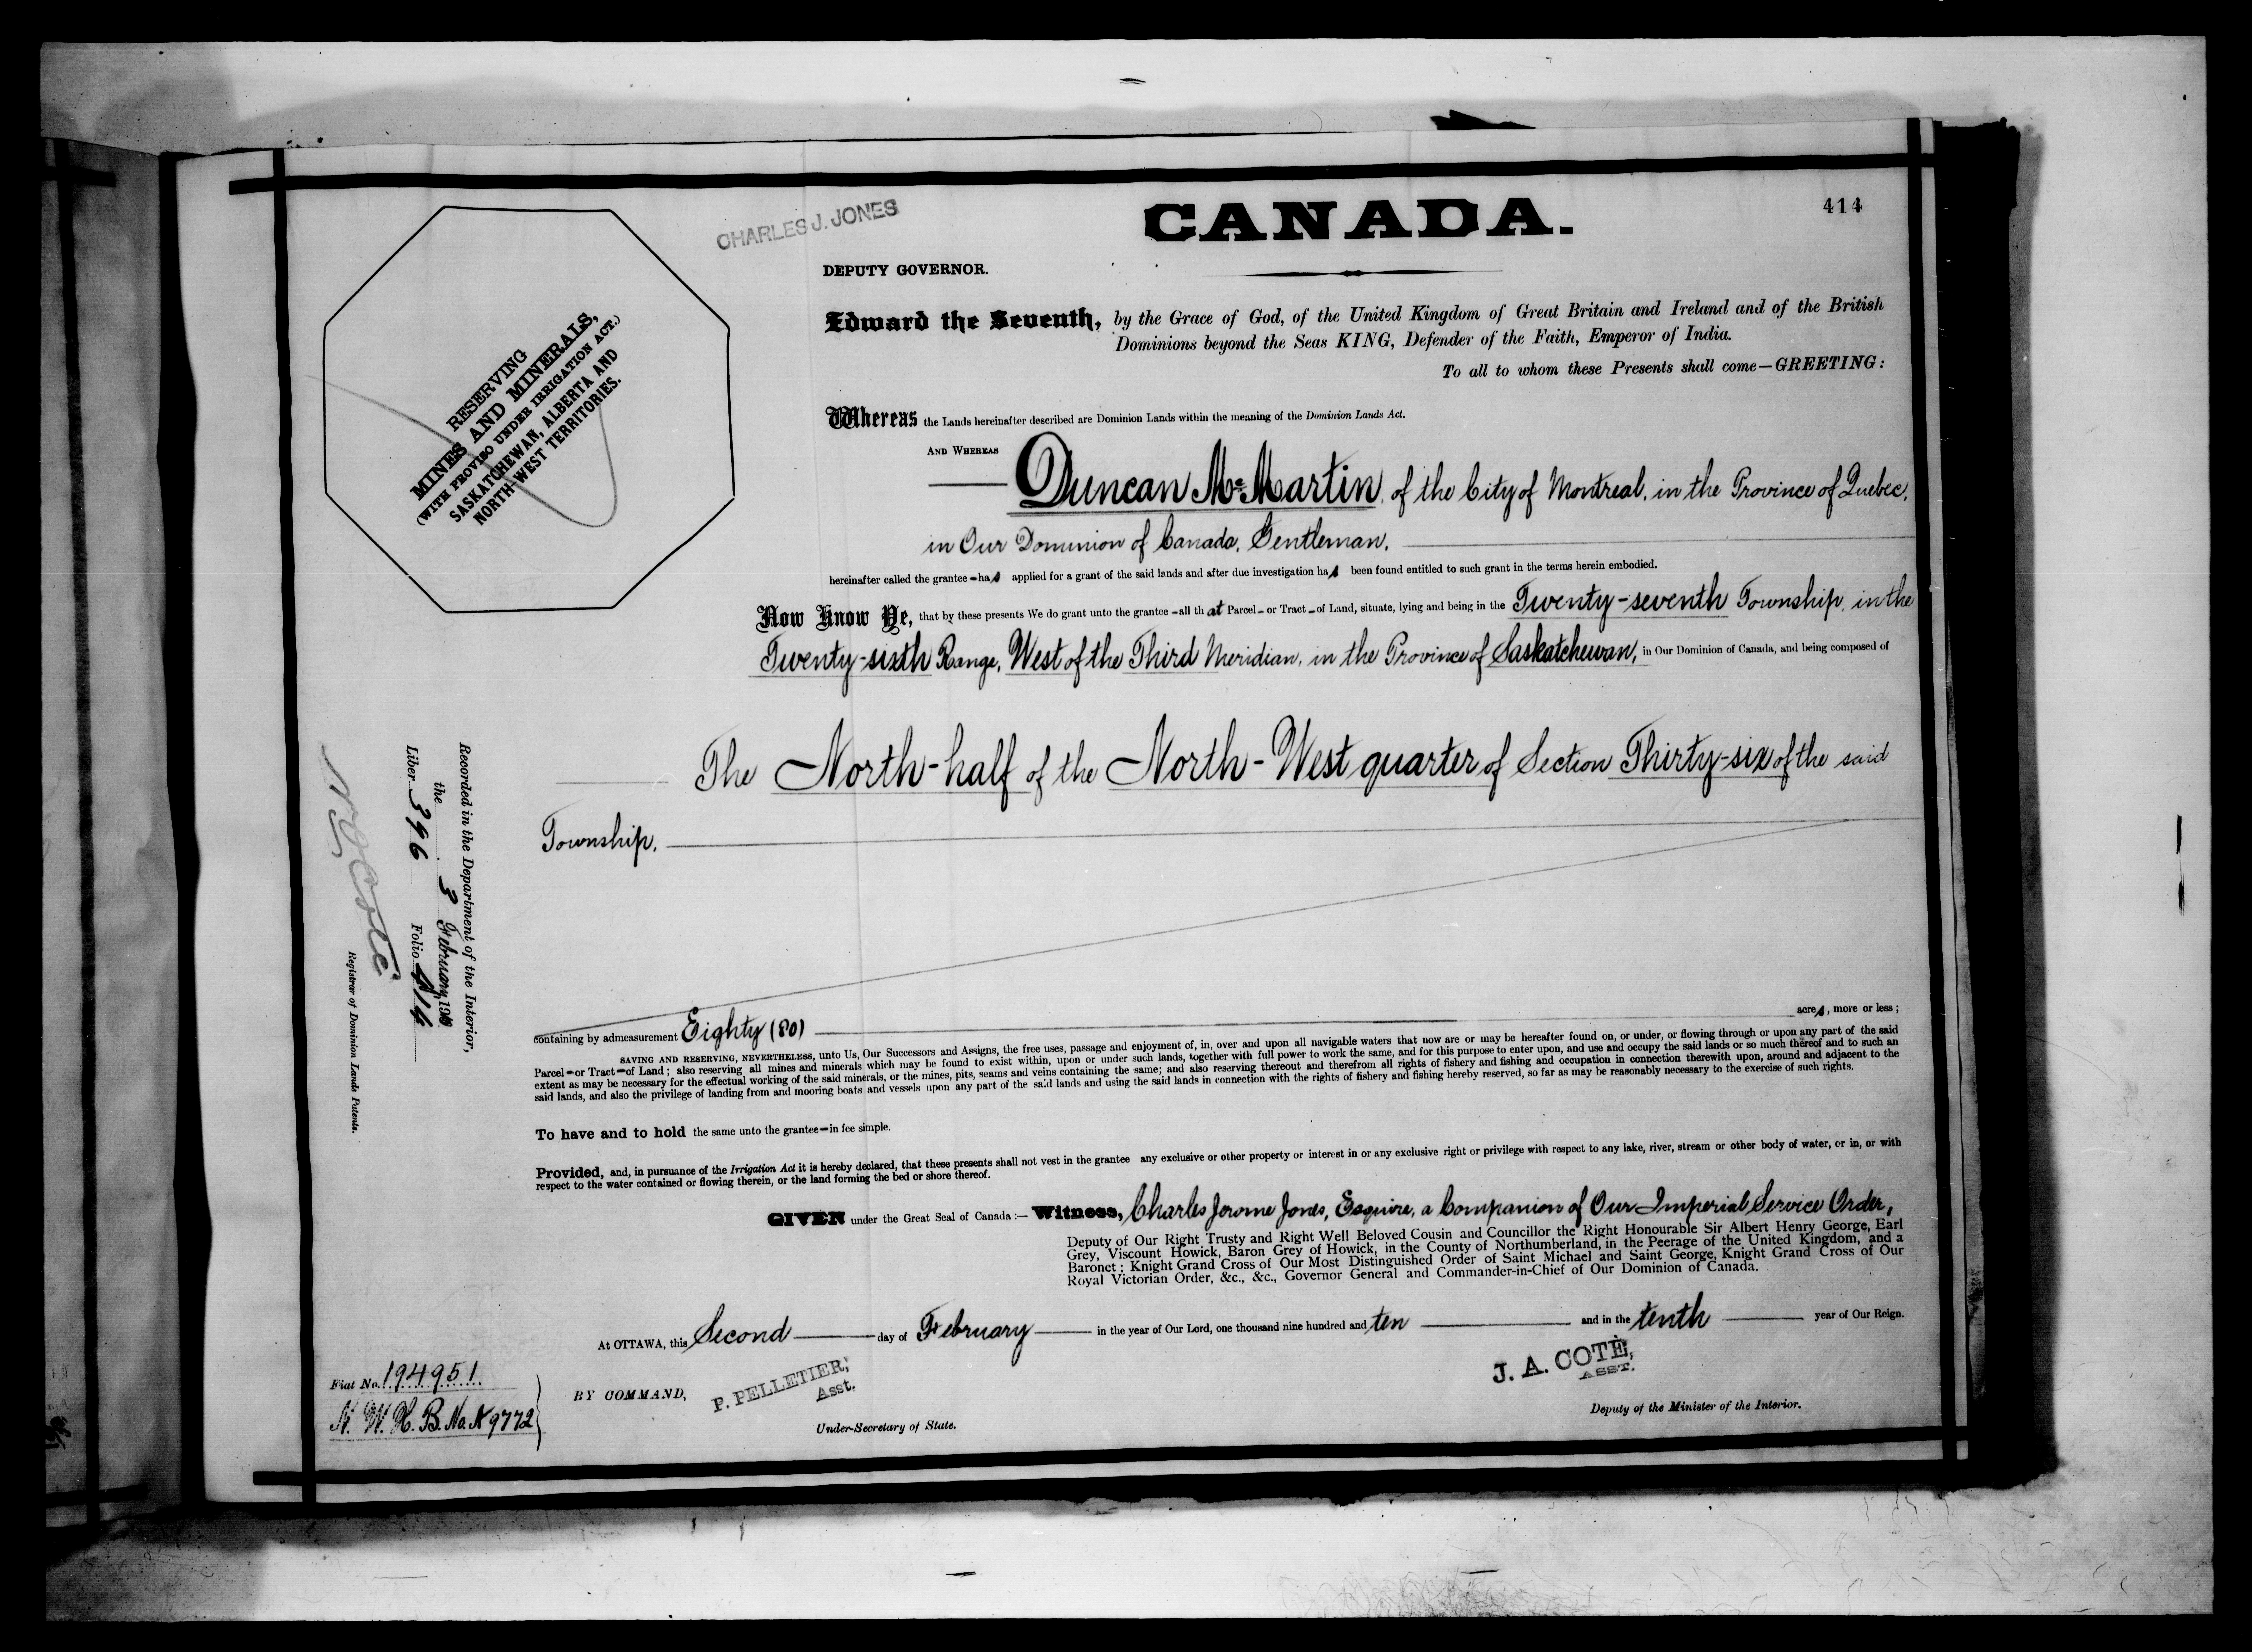 414
CHARLES J. JONES
CANADA.
DEPUTY GOVERNOR.
RESERVING
MINES AND MINERALS,
(WITH PROVISO UNDER IRRIGATION ACT.)
SASKATCHEWAN, ALBERTA AND
NORTH-WEST TERRITORIES.
Edward the Seventh, by the Grace of God, of the United Kingdom of Great Britain and Ireland and of the British
Dominions beyond the Seas KING, Defender of the Faith, Emperor of India.
To all to whom these Presents shall come—GREETING:
Whereas the Lands hereinafter described are Dominion Lands within the meaning of the Dominion Lands Act.
AND WHEREAS
Duncan McMartin, of the City of Montreal, in the Province of Quebec,
in Our Dominion of Canada, Gentleman,
hereinafter called the grantee – has applied for a grant of the said lands and after due investigation has been found entitled to such grant in the terms herein embodied.
Now Know Ye, that by these presents We do grant unto the grantee – all that Parcel – or Tract – of Land, situate, lying and being in the Twenty-seventh Township, in the
Twenty-sixth Range, West of the Third Meridian, in the Province of Saskatchewan, in Our Dominion of Canada, and being composed of
The North-half of the North-West quarter of Section Thirty-six of the said
Township.
Recorded in the Department of the Interior,
the 3 February 1910
Liber 396 Folio 414
N O Coté
Registrar of Dominion Lands Patents.
containing by admeasurement Eighty (80) acres, more or less;
SAVING AND RESERVING, NEVERTHELESS, unto Us, Our Successors and Assigns, the free uses, passage and enjoyment of, in, over and upon all navigable waters that now are or may be hereafter found on, or under, or flowing through or upon any part of the said
Parcel – or Tract – of Land; also reserving all mines and minerals which may be found to exist within, upon or under such lands, together with full power to work the same, and for this purpose to enter upon, and use and occupy the said lands or so much thereof and to such an
extent as may be necessary for the effectual working of the said minerals, or the mines, pits, seams and veins containing the same; and also reserving thereout and therefrom all rights of fishery and fishing and occupation in connection therewith upon, around and adjacent to the
said lands, and also the privilege of landing from and mooring boats and vessels upon any part of the said lands and using the said lands in connection with the rights of fishery and fishing hereby reserved, so far as may be reasonably necessary to the exercise of such rights.
To have and to hold the same unto the grantee – in fee simple.
Provided, and, in pursuance of the Irrigation Act it is hereby declared, that these presents shall not vest in the grantee any exclusive or other property or interest in or any exclusive right or privilege with respect to any lake, river, stream or other body of water, or in, or with
respect to the water contained or flowing therein, or the land forming the bed or shore thereof.
GIVEN under the Great Seal of Canada:— Witness, Charles Jerome Jones, Esquire, a Companion of Our Imperial Service Order,
Deputy of Our Right Trusty and Right Well Beloved Cousin and Councillor the Right Honourable Sir Albert Henry George, Earl
Grey, Viscount Howick, Baron Grey of Howick, in the County of Northumberland, in the Peerage of the United Kingdom, and a
Baronet; Knight Grand Cross of Our Most Distinguished Order of Saint Michael and Saint George, Knight Grand Cross of Our
Royal Victorian Order, &c., &c., Governor General and Commander-in-Chief of Our Dominion of Canada.
At OTTAWA, this Second day of February in the year of Our Lord, one thousand nine hundred and ten and in the tenth year of Our Reign.
Fiat No. 194951
N. W. H. B. No. A 9772
BY COMMAND,
P. PELLETIER,
Asst.
Under-Secretary of State.
J. A. COTÈ,
ASST.
Deputy of the Minister of the Interior.